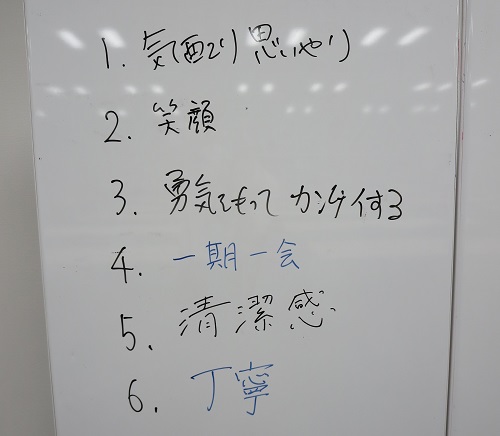 1. 気配り 思いやり
2. 笑顔
3. 勇気をもって カンゲイする
4. 一期一会
5. 清潔感
6. 丁寧